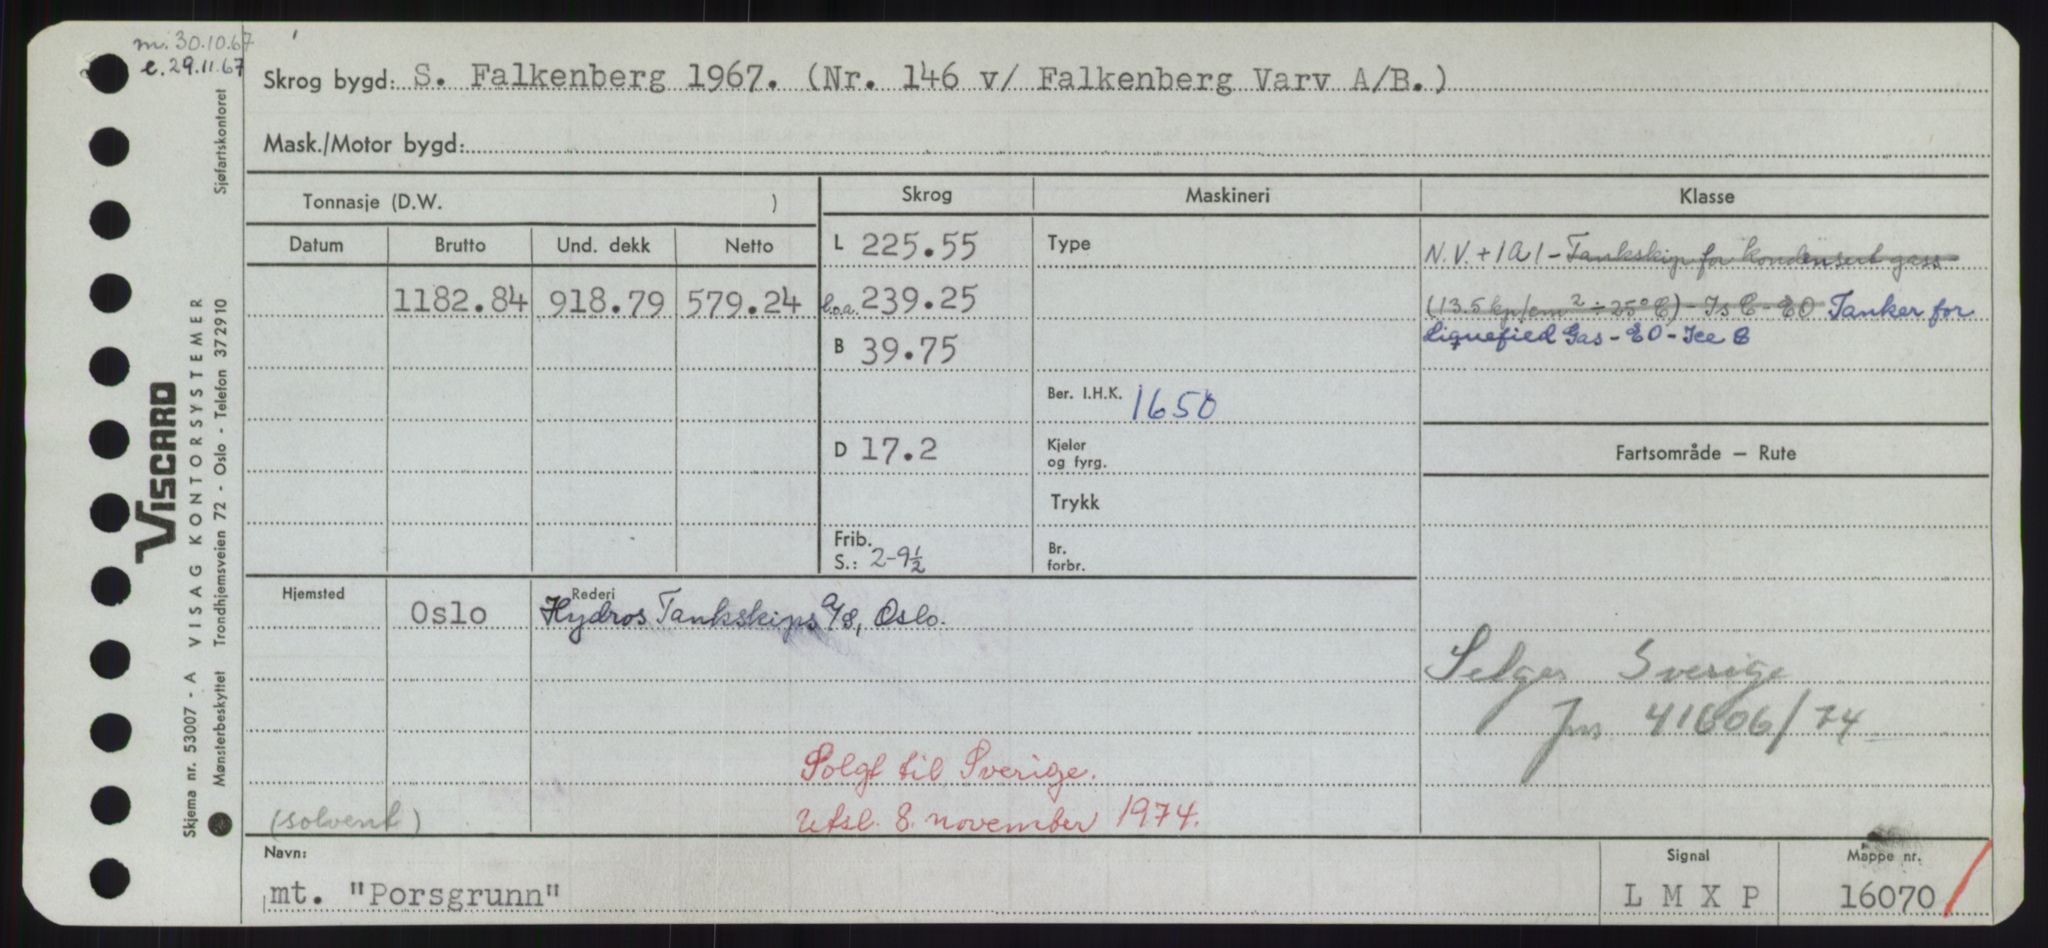 m. 30.10.67
e. 29.11.67
Skrog bygd: S. Falkenberg 1967. (Nr. 146 v/ Falkenberg Varv A/B.)
Mask./Motor bygd:
Tonnasje (D.W. )
Skrog
Maskineri
Klasse
Datum
Brutto
Und. dekk
Netto
1182.84
918.79
579.24
L 225.55
l.o.a. 239.25
B 39.75
D 17.2
Frib.
S.: 2-9½
Type
Ber. I.H.K. 1650
Kjeler
og fyrg.
Trykk
Br.
forbr.
N.V. + 1A1 - Tankskip for kondensert gass
(13.5 kp/cm² ÷ 25°C) - Is C - EO Tanker for
Liquefied Gas - EO - Ice C
Fartsområde — Rute
Hjemsted
Oslo
Rederi
Hydros Tankskips A/S, Oslo.
Selges Sverige
jnr. 41606/74
Solgt til Sverige.
Utsl. 8. november 1974.
(solvent)
Navn:
mt. "Porsgrunn"
Signal
L M X P
Mappe nr.
16070
VISCARD
VISAG KONTORSYSTEMER
Skjema nr. 53007 - A
Mønsterbeskyttet
Trondhjemsveien 72 - Oslo - Telefon 372910
Sjøfartskontoret